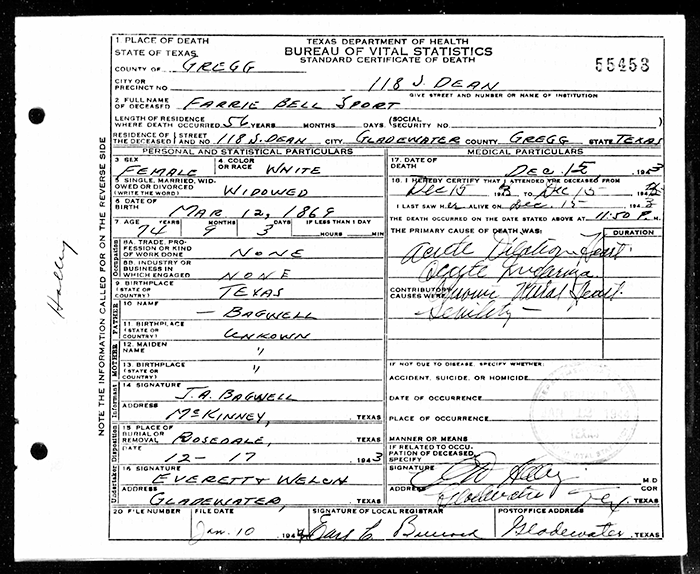 1 PLACE OF DEATH
STATE OF TEXAS
TEXAS DEPARTMENT OF HEALTH
BUREAU OF VITAL STATISTICS
STANDARD CERTIFICATE OF DEATH
COUNTY OF GREGG
55453
CITY OR PRECINCT NO. 118 S. DEAN
GIVE STREET AND NUMBER OR NAME OF INSTITUTION
2 FULL NAME OF DECEASED FARRIE BELL SPORT
LENGTH OF RESIDENCE WHERE DEATH OCCURRED 56 YEARS MONTHS DAYS (SOCIAL SECURITY NO.)
RESIDENCE OF THE DECEASED STREET AND NO. 118 S. DEAN CITY GLADEWATER COUNTY GREGG STATE TEXAS
NOTE THE INFORMATION CALLED FOR ON THE REVERSE SIDE
Holley
PERSONAL AND STATISTICAL PARTICULARS
3 SEX FEMALE 4 COLOR OR RACE WHITE
5 SINGLE, MARRIED, WIDOWED OR DIVORCED (WRITE THE WORD) WIDOWED
6 DATE OF BIRTH MAR 12, 1869
7 AGE YEARS MONTHS DAYS IF LESS THAN 1 DAY
74 9 3 HOURS MIN
Occupation
8A. TRADE, PROFESSION OR KIND OF WORK DONE NONE
8B. INDUSTRY OR BUSINESS IN WHICH ENGAGED NONE
9 BIRTHPLACE (STATE OR COUNTRY) TEXAS
FATHER
10 NAME — BAGWELL
11 BIRTHPLACE (STATE OR COUNTRY) UNKOWN
MOTHER
12 MAIDEN NAME "
13 BIRTHPLACE (STATE OR COUNTRY) "
Informant
14 SIGNATURE J.A. BAGWELL
ADDRESS McKINNEY, TEXAS
Disposition
15 PLACE OF BURIAL OR REMOVAL ROSEDALE, TEXAS
DATE 12-17 1943
Undertaker
16 SIGNATURE EVERETT & WELCH
ADDRESS GLADEWATER, TEXAS
MEDICAL PARTICULARS
17. DATE OF DEATH DEC. 15 1943
18. I HEREBY CERTIFY THAT I ATTENDED THE DECEASED FROM
Dec 15 43 Dec 15 1943
I LAST SAW Her ALIVE ON Dec. 15 1943
THE DEATH OCCURRED ON THE DATE STATED ABOVE AT 11:50 P. M.
THE PRIMARY CAUSE OF DEATH WAS: DURATION
Acute Dilation Heart
Acute
CONTRIBUTORY CAUSES WERE
Heart
Senility
IF NOT DUE TO DISEASE, SPECIFY WHETHER:
ACCIDENT, SUICIDE, OR HOMICIDE
DATE OF OCCURRENCE
PLACE OF OCCURRENCE
MANNER OR MEANS
IF RELATED TO OCCUPATION OF DECEASED, SPECIFY
SIGNATURE Holley M D
Gladewater Tex COR TEXAS
20 FILE NUMBER FILE DATE SIGNATURE OF LOCAL REGISTRAR POSTOFFICE ADDRESS
Jan. 10 1944 Earl L Gladewater, TEXAS